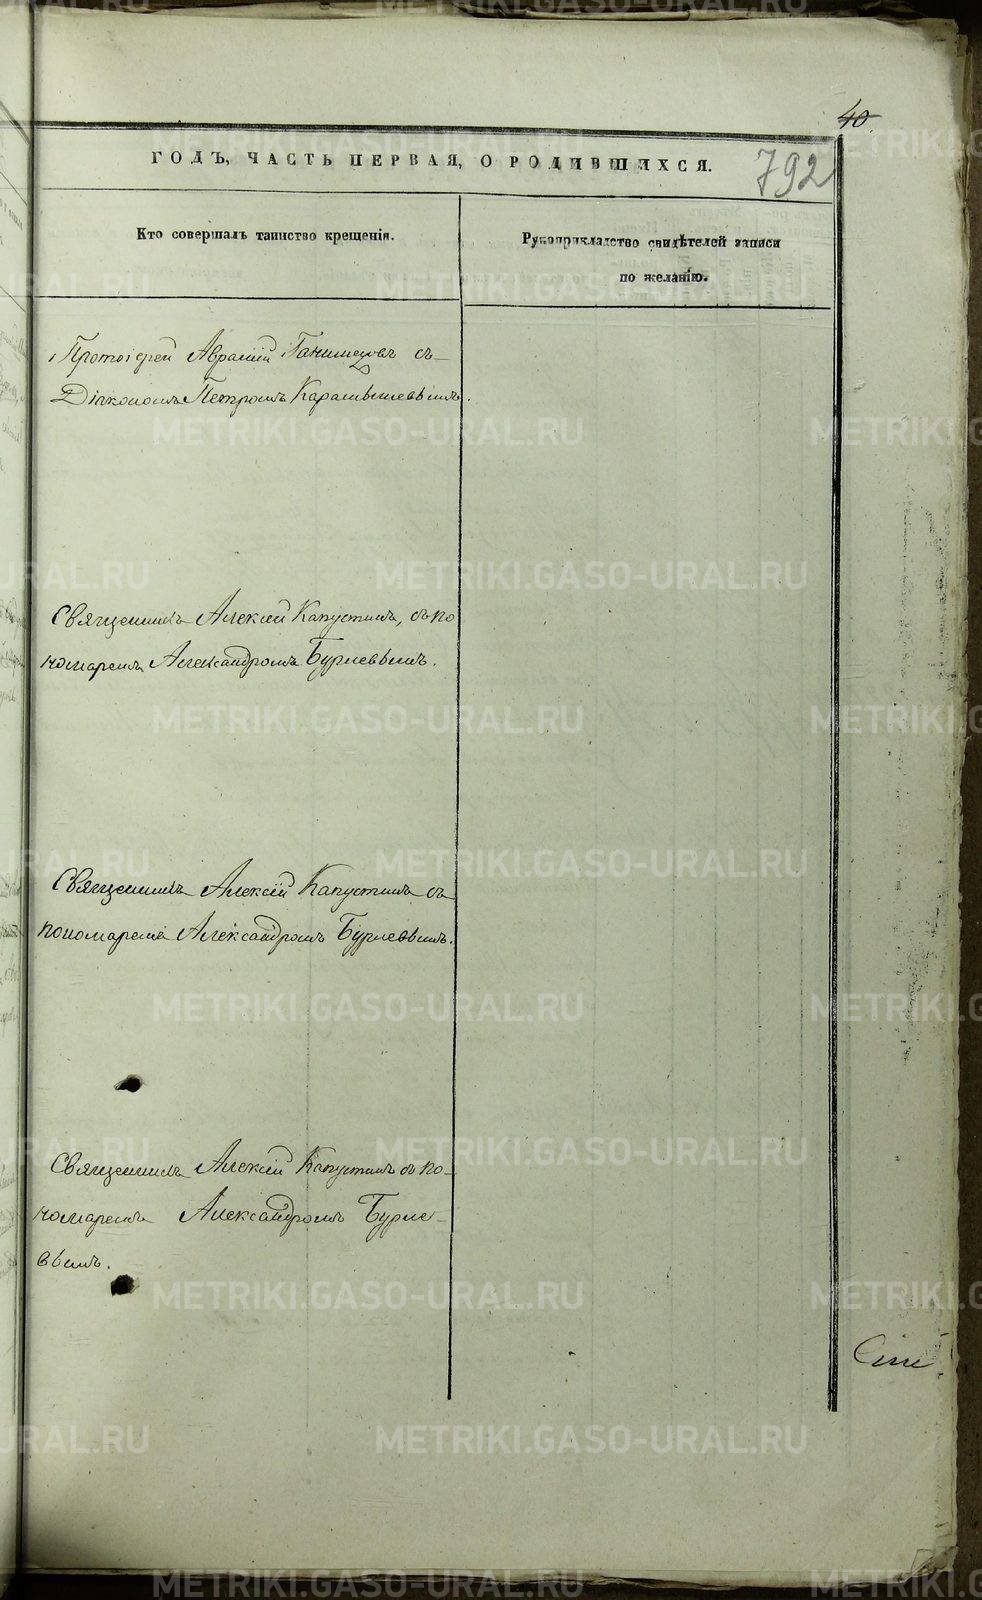 40.
ГОДЪ, ЧАСТЬ ПЕРВАЯ, О РОДИВШИХСЯ.
792
Кто совершалъ таинство крещенія.
Рукоприкладство свидѣтелей записи
по желанію.
Протоіерей Аврамій съ
Діакономъ Петромъ Карамышевымъ.
Священникъ Алексій Капустинъ, съ по
номаремъ Александромъ Бурневымъ.
Священникъ Алексій Капустинъ съ
пономаремъ Александромъ Бурневымъ.
Священникъ Алексій Капустинъ съ по-
номаремъ Александромъ Бурне-
вымъ.
METRIKI.GASO-URAL.RU